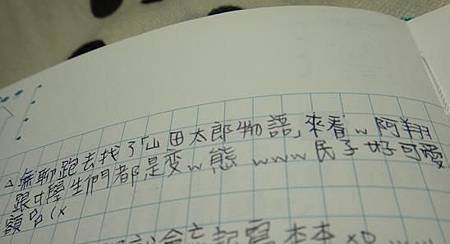 △無聊跑去找了「山田太郎物語」來看w 阿翔
跟中學生們都是变w態 www 民子好可愛
額呵(x
會忘記寫本本xD